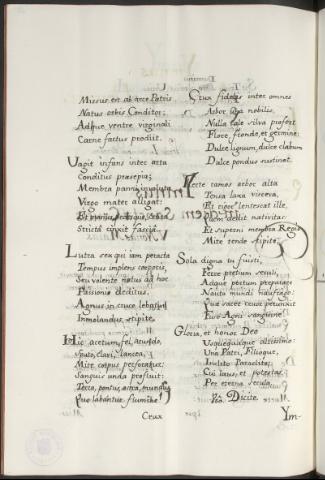 Missus est ab arce Patris
Natus orbis Conditor;
Atque ventre virginali
Carne factus prodiit.
Vagit infans inter arta
Conditus præsepia;
Membra pannis involuta
Virgo mater alligat:
Et manus, pedesque, et crura
Stricta cingit fascia.
Lustra sex qui iam peracta
Tempus implens corporis,
Se volente natus ad hoc
Passioni deditus,
Agnus in cruce levatur
Inmolandus stipite.
Hic acetum, fel, arundo,
Sputo, clavi, lancea,
Mite corpus perforatur:
Sanguis unda profluit:
Terra, pontus, astra, mundus
Quo lavantur flumine!
Crux
Crux fidelis inter omnes
Arbor una nobilis,
Nulla tale silva profert
Flore, fronde, et germine:
Dulce lignum, dulce clavum
Dulce pondus sustinet.
Flecte ramos arbor alta
Tensa laxa viscera,
Et rigor lentescat ille
Quem dedit nativitas:
Et superni membra Regis
Mite tende stipite.
Sola digna tu fuisti,
Ferre pretium sæculi,
Atque portum præparare
Nauta mundo naufrago:
Quem sacer cruor perunxit
Fuso Agni sanguine.
Gloria, et honor Deo
Usquequaque altissimo:
Una Patri, Filioque,
Inclito Paraclito:
Cui laus, et potestas
Per eterna sæcula.
Dicite
Ym-